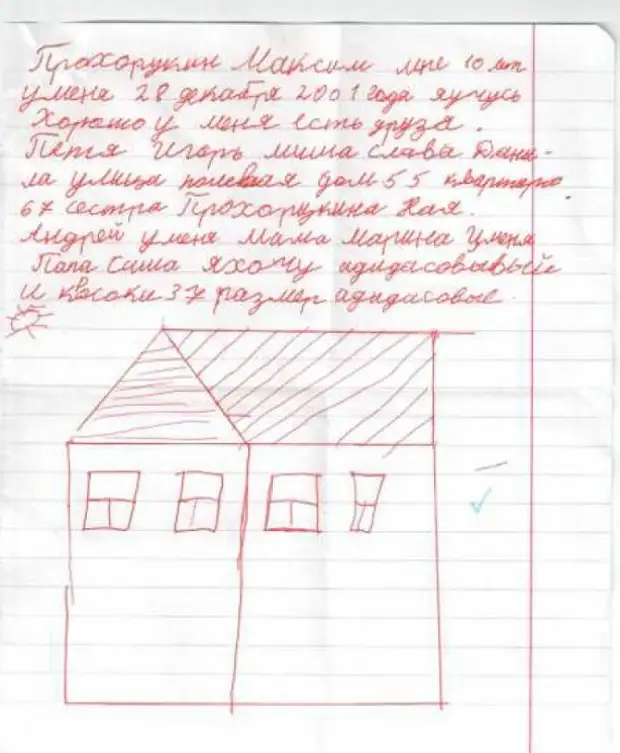 Прохорукин Максим мне 10 лет
у меня 28 декабря 2001 года я учусь
хорошо у меня есть друза.
Петя Игорь миша слава Дани-
ла улица полевая дом 55 квартера
67 сестра Прохорукина Ная.
Андрей у меня мама марина Уменя
Папа Саша я хочу адидасовывый
и кросоки 37 размер адидасовые.